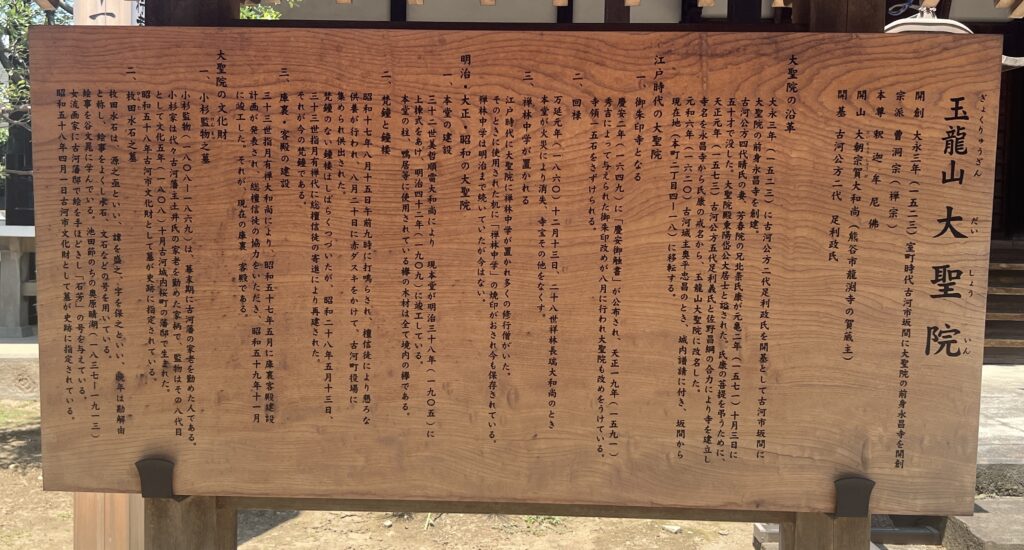 玉龍山 大聖院
ぎょくりゅうざん だい しょう いん
開創 大永三年（一五二三）室町時代古河市坂間に大聖院の前身永昌寺を開創
宗派 曹洞宗（禅宗）
本尊 釈迦牟尼佛
開山 大朝宗賀大和尚（熊谷市龍渕寺の賀蔵主）
開基 古河公方二代 足利政氏
大聖院の沿革
大永三年（一五二三）に古河公方二代足利政氏を開基として古河市坂間に
大聖院の前身永昌寺を創建。
古河公方四代晴氏の妻、芳春院の兄北条氏康が元亀二年（一五七一）十月三日に
五十才で没した時、大聖院殿東陽岱公大居士と謚された。氏康の菩提を弔うために、
天正元年（一五七三）古河公方五代足利義氏と佐野昌綱の合力により寺を建立し
寺名を永昌寺から氏康の戒名から、玉龍山大聖院に改名した。
元和六年（一六二〇）、古河城主奥平忠昌のとき、城内諸請に付き、坂間から
現在地（本町二丁目四―一八）に移転する。
江戸時代の大聖院
一、御朱印寺となる
慶安二年（一六四九）に「慶安御触書」が公布され、天正一九年（一五九一）
秀吉によって与えられた御朱印改めが八月に行われ大聖院も改めをうけている。
寺領二五石をさずけられる。
二、回禄
万延元年（一八六〇）十二月十三日、二十八世祥林長瑞大和尚のとき
本堂など火災により消失、寺宝その他をなくす。
三、禅林中学が置かれる
江戸時代に大聖院に禅林中学が置かれ多くの修行僧がいた。
そのときに使用された机に「禅林中学」の焼印がおされ今も保存されている。
禅林中学は明治まで続いていたが今はない。
明治・大正・昭和の大聖院
一、本堂の建設
三十二世美哲顕富大和尚により、現本堂が明治三十八年（一九〇五）に
上棟式をあげ、明治四十二年（一九〇九）に竣工している。
本堂の柱、鴨居等に使用されている欅の木材は全て境内の欅である。
二、梵鐘と鐘楼
昭和十七年八月十五日午前九時に打鳴らされ、檀信徒により懇ろな
供養が行われ、八月二十日に赤ダスキをかけて、古河町役場に
集められ供出された。
梵鐘のない鐘楼はしばらくつづいたが、昭和二十八年五月十三日、
三十三世指月有禅代に総檀信徒の寄進により再建された。
それが今の梵鐘である。
三、庫裏・客殿の建設
三十三世指月有禅大和尚により、昭和五十七年五月に庫裏客殿建設
計画が発表され、総檀信徒の協力をいただき、昭和五十九年十一月
に竣工した。それが、現在の庫裏、客殿である。
大聖院の文化財
一、小杉監物之墓
小杉監物（一八〇一～一八六九）は、幕末期に古河藩の家老を勤めた人である。
小杉家は代々古河藩主土井氏の家老を勤めた家柄で、監物はその八代目
として文化五年（一八〇八）十月古河城内桜町の藩邸で生まれた。
昭和五十八年古河市文化財として墓が史跡に指定されている。
二、牧田水石之墓
牧田水石は、源之丞といい、諱を盛之、字を保之といい、晩年は勘解由
と称し、絵事をよくし水石、文石などの号を用いている。
絵事を谷文晁に学んでいる。池田節のちの奥原晴湖（一八三七―一九一三）
女流画家に古河藩邸で絵を手ほどきし「石芳」の号を与えている。
昭和五十八年四月一日古河市文化財として墓が史跡に指定されている。